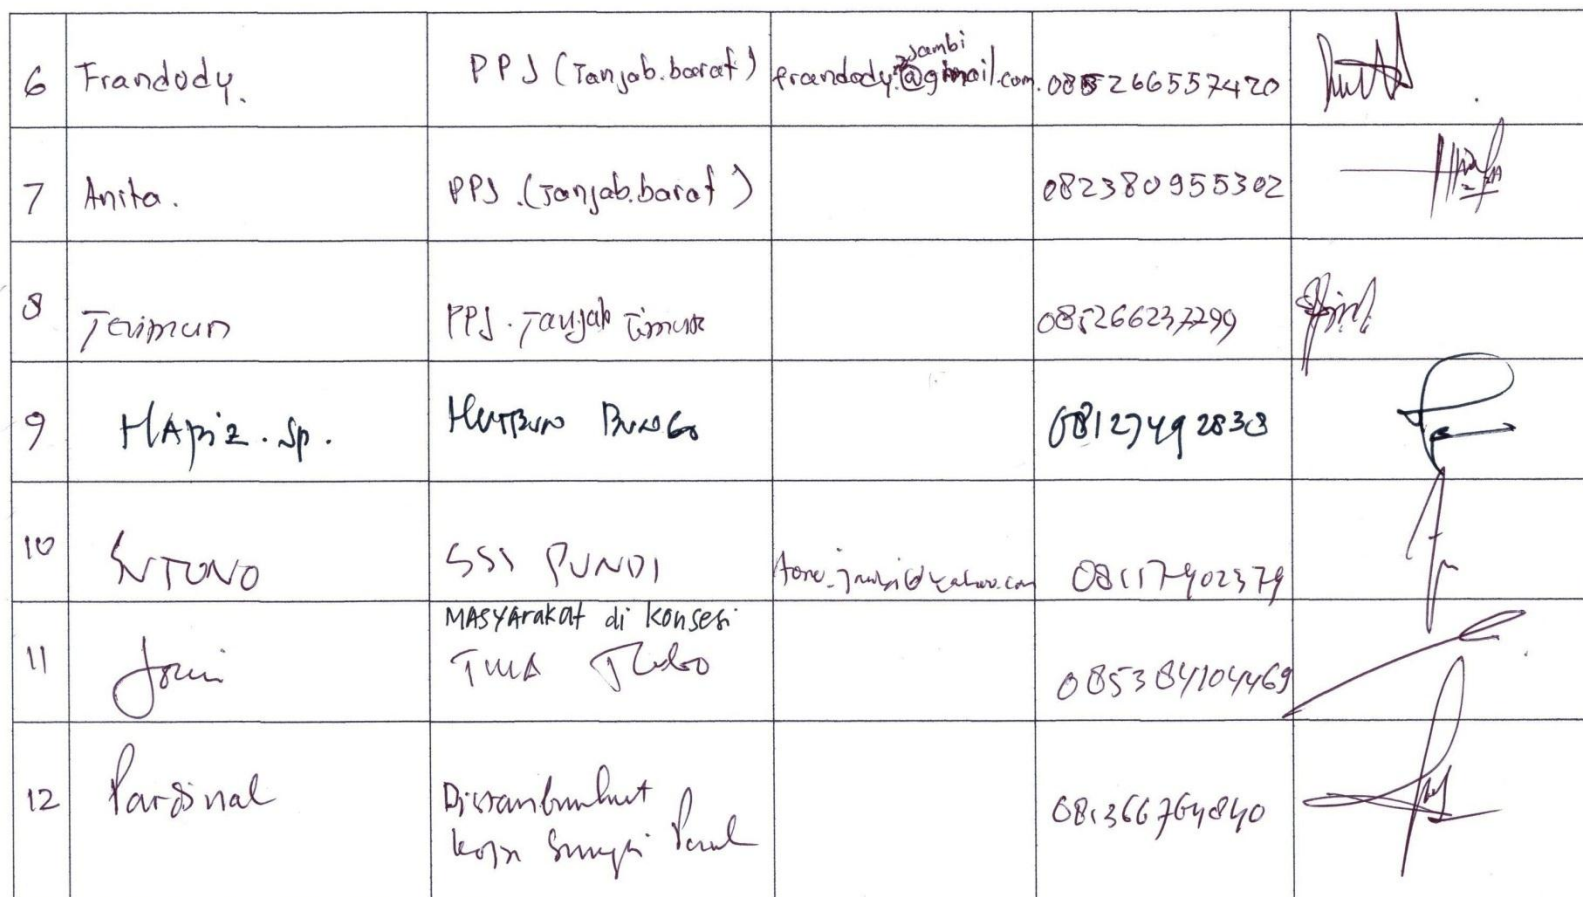 6 Frandody. PPJ (Tanjab.barat) frandody.jambi@gmail.com. 085266557420
7 Anita. PPJ.(Tanjab.barat) 082380955302
8 Taimun PPJ. Tanjab Timur 085266237299
9 HAPiz. Sp. HUTBUN BUNGO 08127492833
10 SUTONO SSS PUNDI 08117402379
11 MASYARakat di konsesi
085384104469
12 Pardinal
Sungai 081366764840